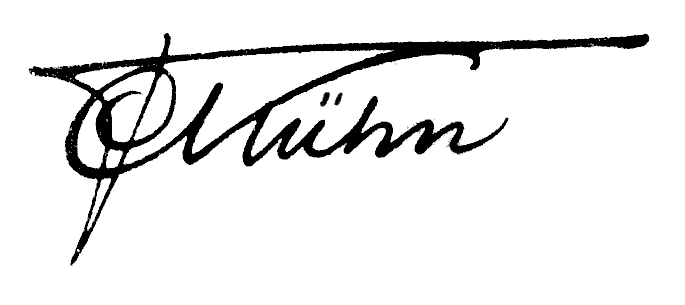 Kühn